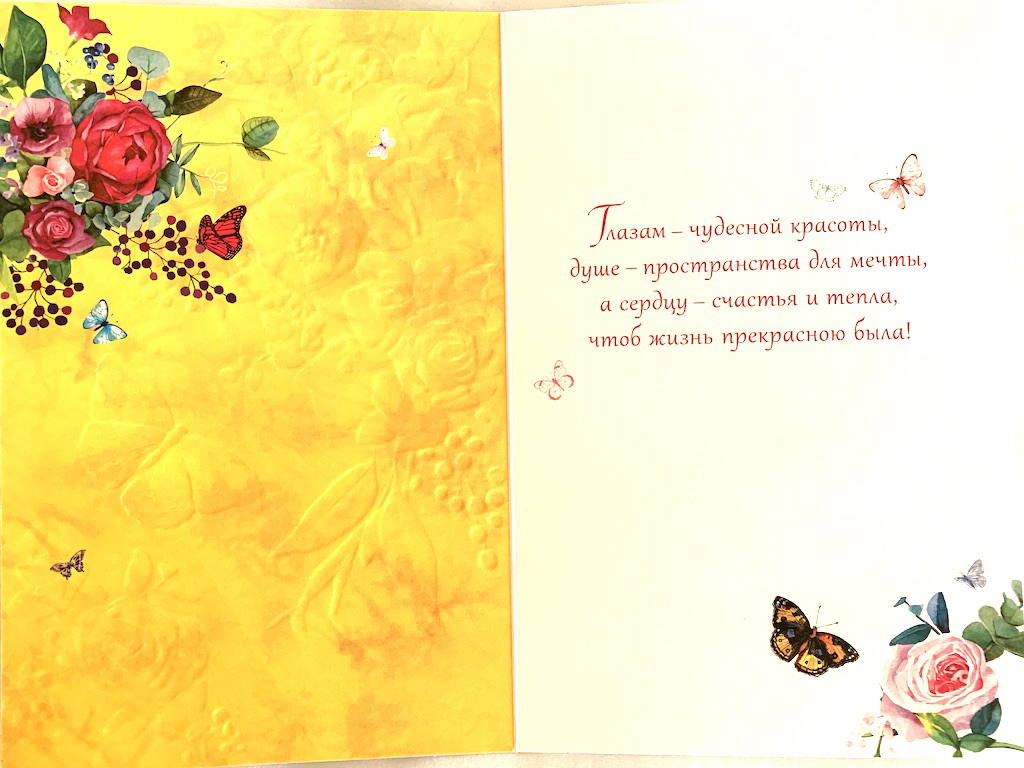 Глазам – чудесной красоты,
душе – пространства для мечты,
а сердцу – счастья и тепла,
чтоб жизнь прекрасною была!